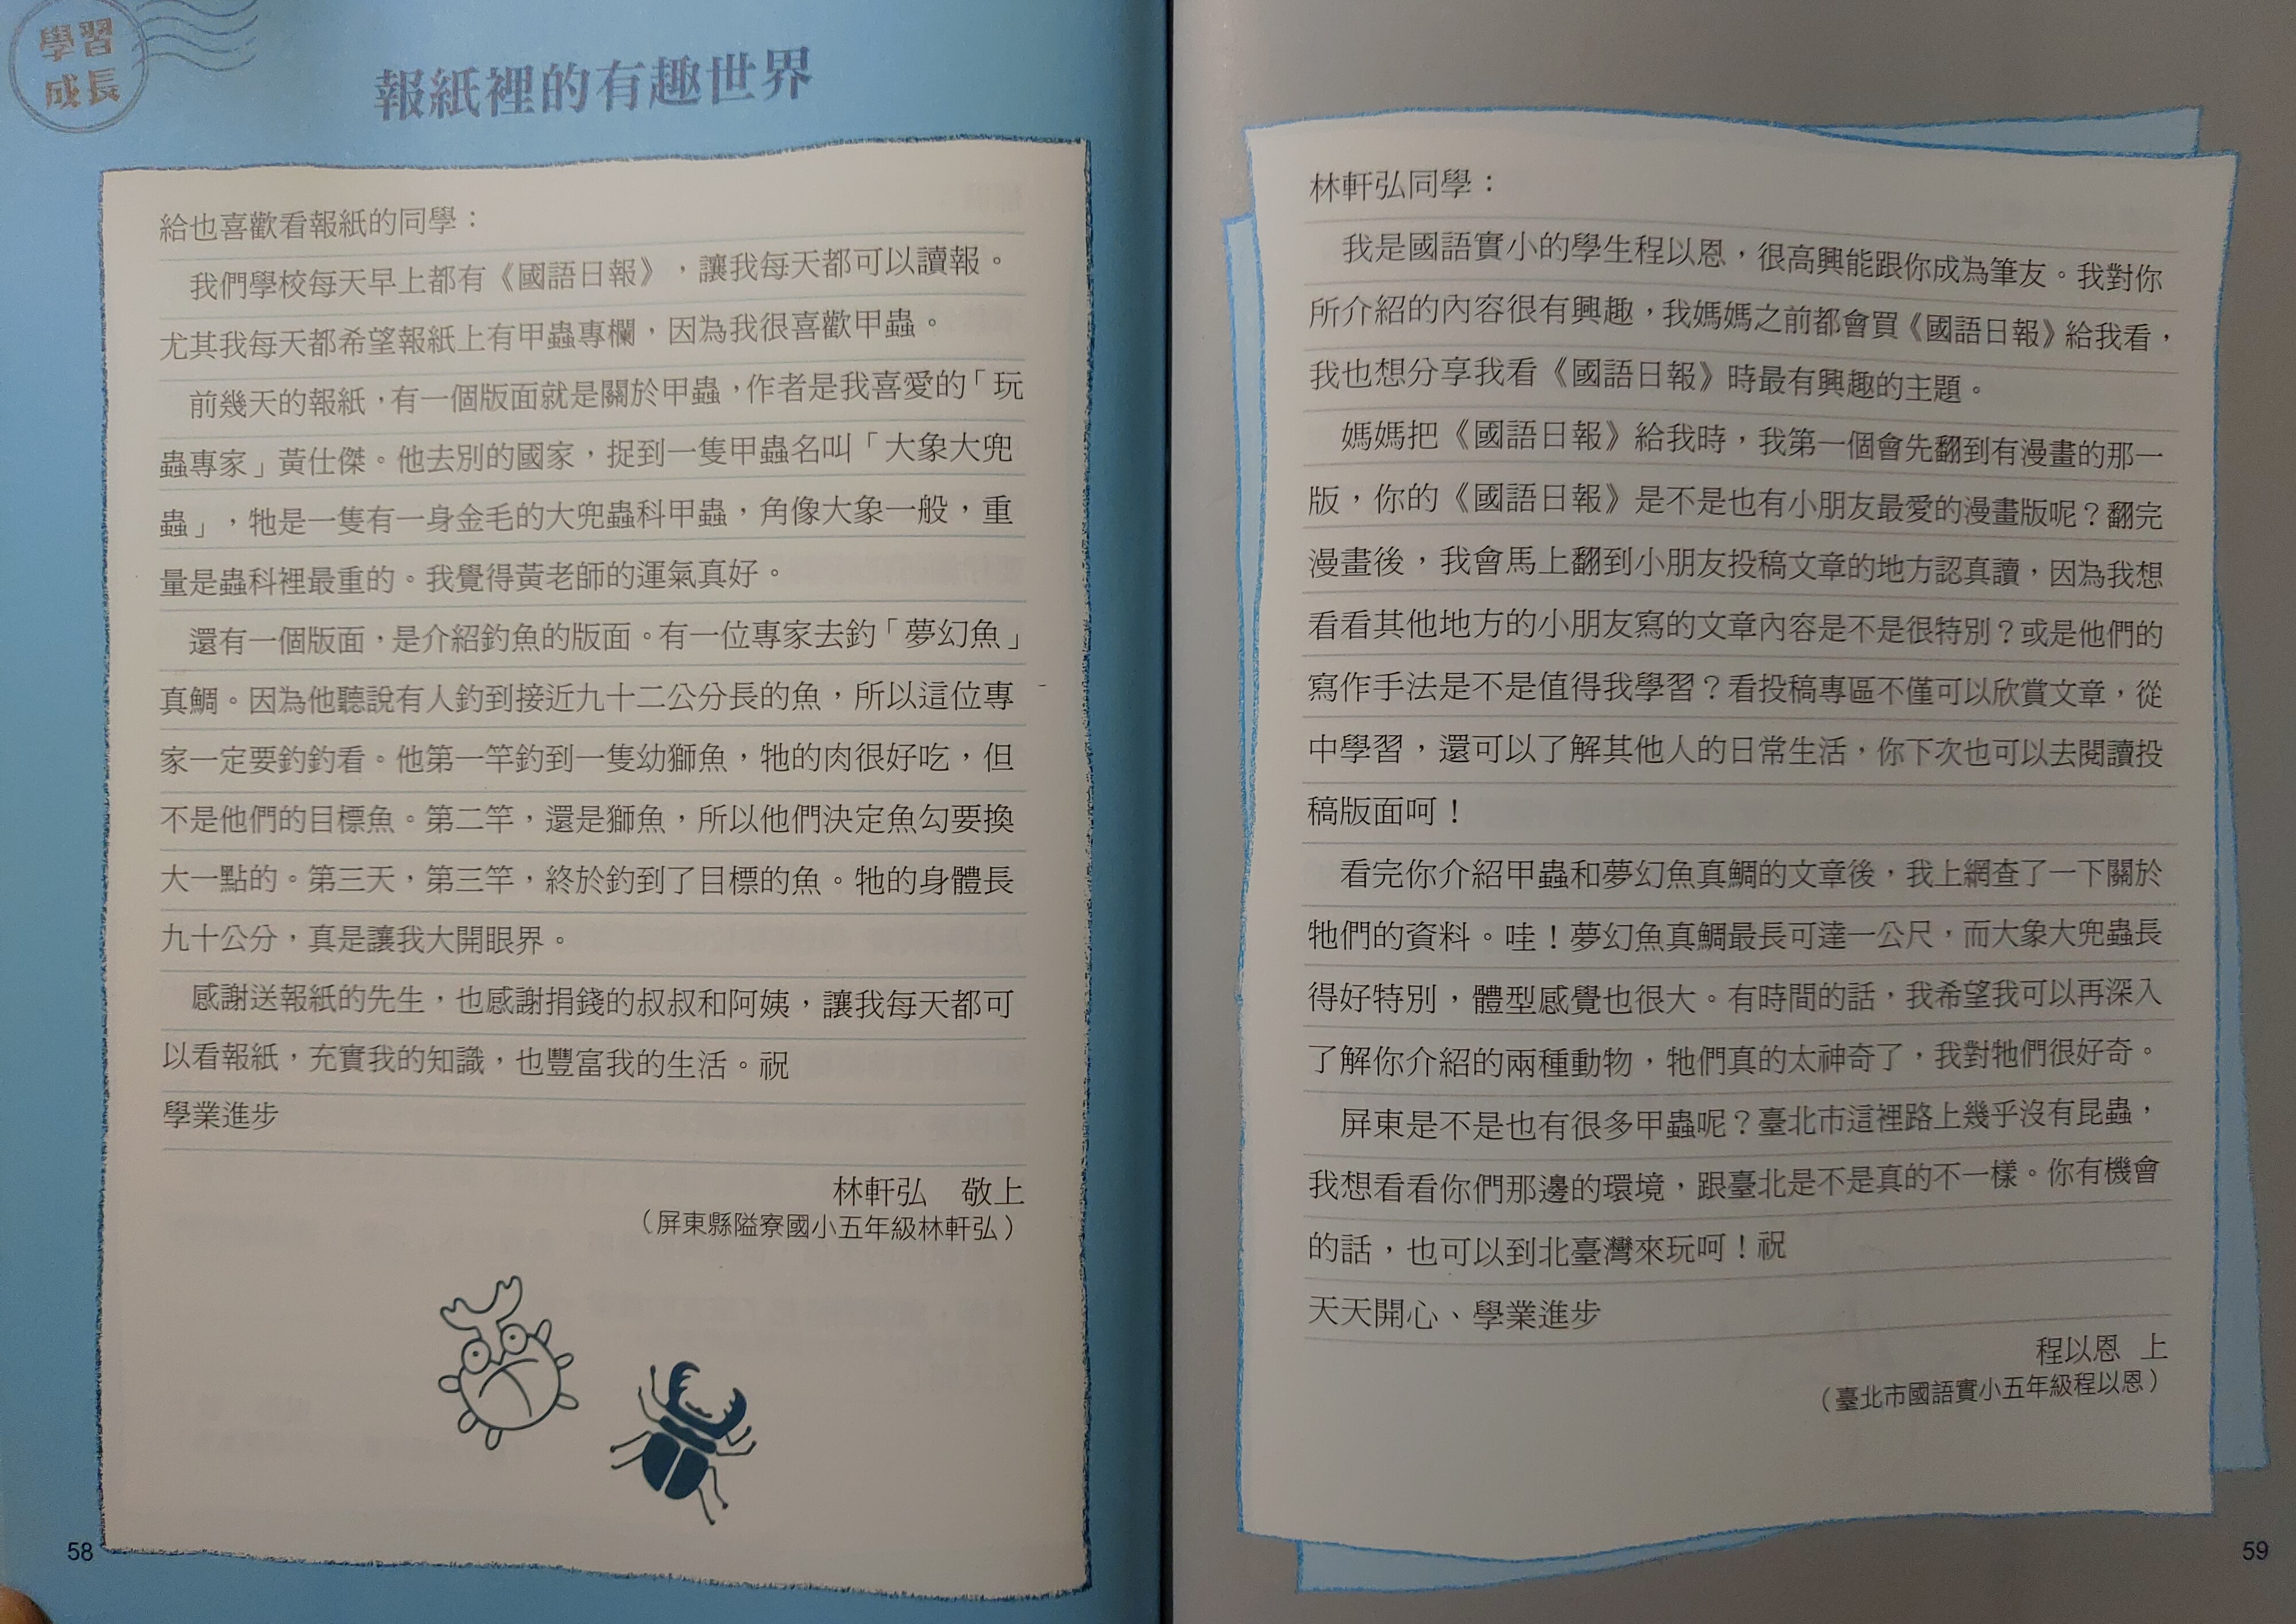 學習
成長
報紙裡的有趣世界
給也喜歡看報紙的同學：
我們學校每天早上都有《國語日報》，讓我每天都可以讀報。
尤其我每天都希望報紙上有甲蟲專欄，因為我很喜歡甲蟲。
前幾天的報紙，有一個版面就是關於甲蟲，作者是我喜愛的「玩
蟲專家」黃仕傑。他去別的國家，捉到一隻甲蟲名叫「大象大兜
蟲」，牠是一隻有一身金毛的大兜蟲科甲蟲，角像大象一般，重
量是蟲科裡最重的。我覺得黃老師的運氣真好。
還有一個版面，是介紹釣魚的版面。有一位專家去釣「夢幻魚」
真鯛。因為他聽說有人釣到接近九十二公分長的魚，所以這位專
家一定要釣釣看。他第一竿釣到一隻幼獅魚，牠的肉很好吃，但
不是他們的目標魚。第二竿，還是獅魚，所以他們決定魚勾要換
大一點的。第三天，第三竿，終於釣到了目標的魚。牠的身體長
九十公分，真是讓我大開眼界。
感謝送報紙的先生，也感謝捐錢的叔叔和阿姨，讓我每天都可
以看報紙，充實我的知識，也豐富我的生活。祝
學業進步
林軒弘　敬上
（屏東縣隘寮國小五年級林軒弘）
58
林軒弘同學：
我是國語實小的學生程以恩，很高興能跟你成為筆友。我對你
所介紹的內容很有興趣，我媽媽之前都會買《國語日報》給我看，
我也想分享我看《國語日報》時最有興趣的主題。
媽媽把《國語日報》給我時，我第一個會先翻到有漫畫的那一
版，你的《國語日報》是不是也有小朋友最愛的漫畫版呢？翻完
漫畫後，我會馬上翻到小朋友投稿文章的地方認真讀，因為我想
看看其他地方的小朋友寫的文章內容是不是很特別？或是他們的
寫作手法是不是值得我學習？看投稿專區不僅可以欣賞文章，從
中學習，還可以了解其他人的日常生活，你下次也可以去閱讀投
稿版面呵！
看完你介紹甲蟲和夢幻魚真鯛的文章後，我上網查了一下關於
牠們的資料。哇！夢幻魚真鯛最長可達一公尺，而大象大兜蟲長
得好特別，體型感覺也很大。有時間的話，我希望我可以再深入
了解你介紹的兩種動物，牠們真的太神奇了，我對牠們很好奇。
屏東是不是也有很多甲蟲呢？臺北市這裡路上幾乎沒有昆蟲，
我想看看你們那邊的環境，跟臺北是不是真的不一樣。你有機會
的話，也可以到北臺灣來玩呵！祝
天天開心、學業進步
程以恩　上
（臺北市國語實小五年級程以恩）
59